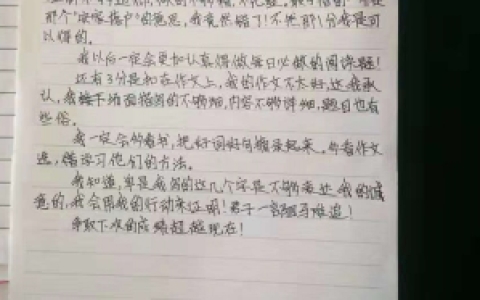 那个"定家掳户"的意思,我竟然错了!不然那1分我是可
以得的。
我以后一定会更加认真得做每日必做的阅读题!
还有3分是扣在作文上,我的作文不太好,这我承
认,我
内容不够详细,题目也有
些俗。
我一定会多看书,把好词好句摘录起来,多看作文
选,学习他们的方法。
我知道,单是我写的这几个字是不够表达我的诚
意的,我会用我的行动来证明!君子一言驷马难追!
争取下次的成绩超越现在!